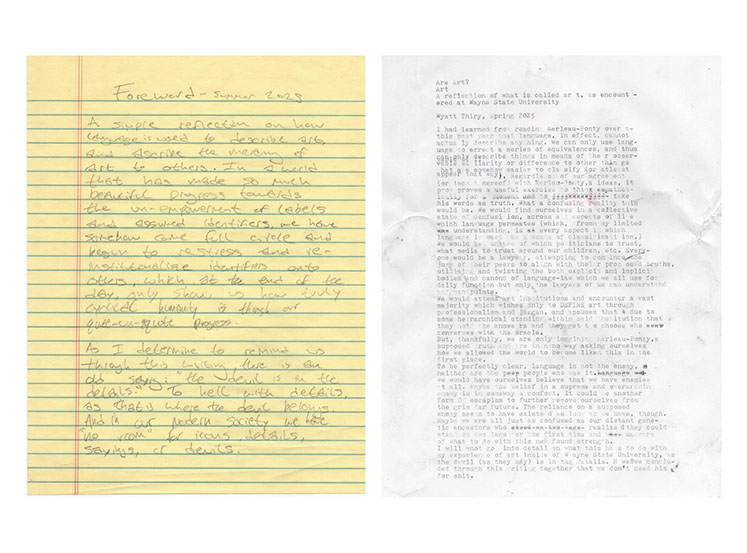 Foreword - Summer 2025
A simple reflection on how
language is used to describe art,
and ascribe the meaning of
art to others. In a world
that has made so much
beautiful progress towards
the un-empowerment of labels
and assumed identifiers, we have
somehow come full circle and
begun to re-stress and re-
institutionalize identifiers onto
others, which at the end of the
day, only shows us how truly
cyclical humanity is though our
quote-un-quote progress.
As I determine to remind us
through this writing there is an
old saying: "the devil is in the
details." To hell with details,
as that is where the devil belongs.
And in our modern society we have
"no room" for ironic details,
sayings, or devils.
Are Art?
Art
A reflection of what is called art, as encount -
ered at Wayne State University
Wyatt Thiry, Spring 2025
I had learned from reading Merleau-Ponty over t-
this past year that language, in effect, cannot
actually describe anything. We can only use lang-
uage to erect a series of equivalences, and thus
can only describe things in means of their obser-
vable similarity or difference to other things
that are somehow easier to classify (or at least
appear that way). Regardless of our agreement
(or lack thereof) with Merleau-Ponty's ideas, it
proves a useful exercise to think
for a moment and to take
his words as truth. What a confusing reality this
would be. We would find ourselves in a collective
state of confusion, across all aspects of life
which language permeates (which, from my limited
understanding, is every aspect in which
language is used as a means of classification.)
We would be unsure of which politicians to trust,
what media to trust around our children, etc. Every-
one would be a lawyer, attempting to convince the
jury of their peers to align with their truths,
utilizing and twisting the both explicit and implicit
bodies and canons of language-law which we all use for
daily function but only the lawyers of us can understand
and manipulate.
We would attend institutions and encounter a vast
majority which wishes only to DEFINE art through
professionalism and jargon, and assumes that due to
some hierarchical standing within said institution that
they hold the answers and they get to choose who
converses with the oracle.
But, thankfully, we are only imagining Merleau-Ponty's
supposed truth and are in no way asking ourselves
how we allowed the world to become like this in the
first place.
To be perfectly clear, language is not the enemy,
neither are the people who use it.
We would have ourselves believe that we have enemies
at all. Maybe the belief in a supreme and overarching
enemy is in some way a comfort. It could be another
form of escapism to further remove ourselves from
the grim far future. The reliance on a supposed
enemy seem to have existed as long as we have, though.
Maybe we are all just as confused as our distant gene-
tic ancestors who realized they could
stand on two legs for the first time and unsure
of what to do with this newfound strength.
I will not go into detail on what this has to do with
my experience of art inside of Wayne State University, as
the devil (as they say) is in the details. & we've conclu-
ded through this writing together that we don't need him
for shit.